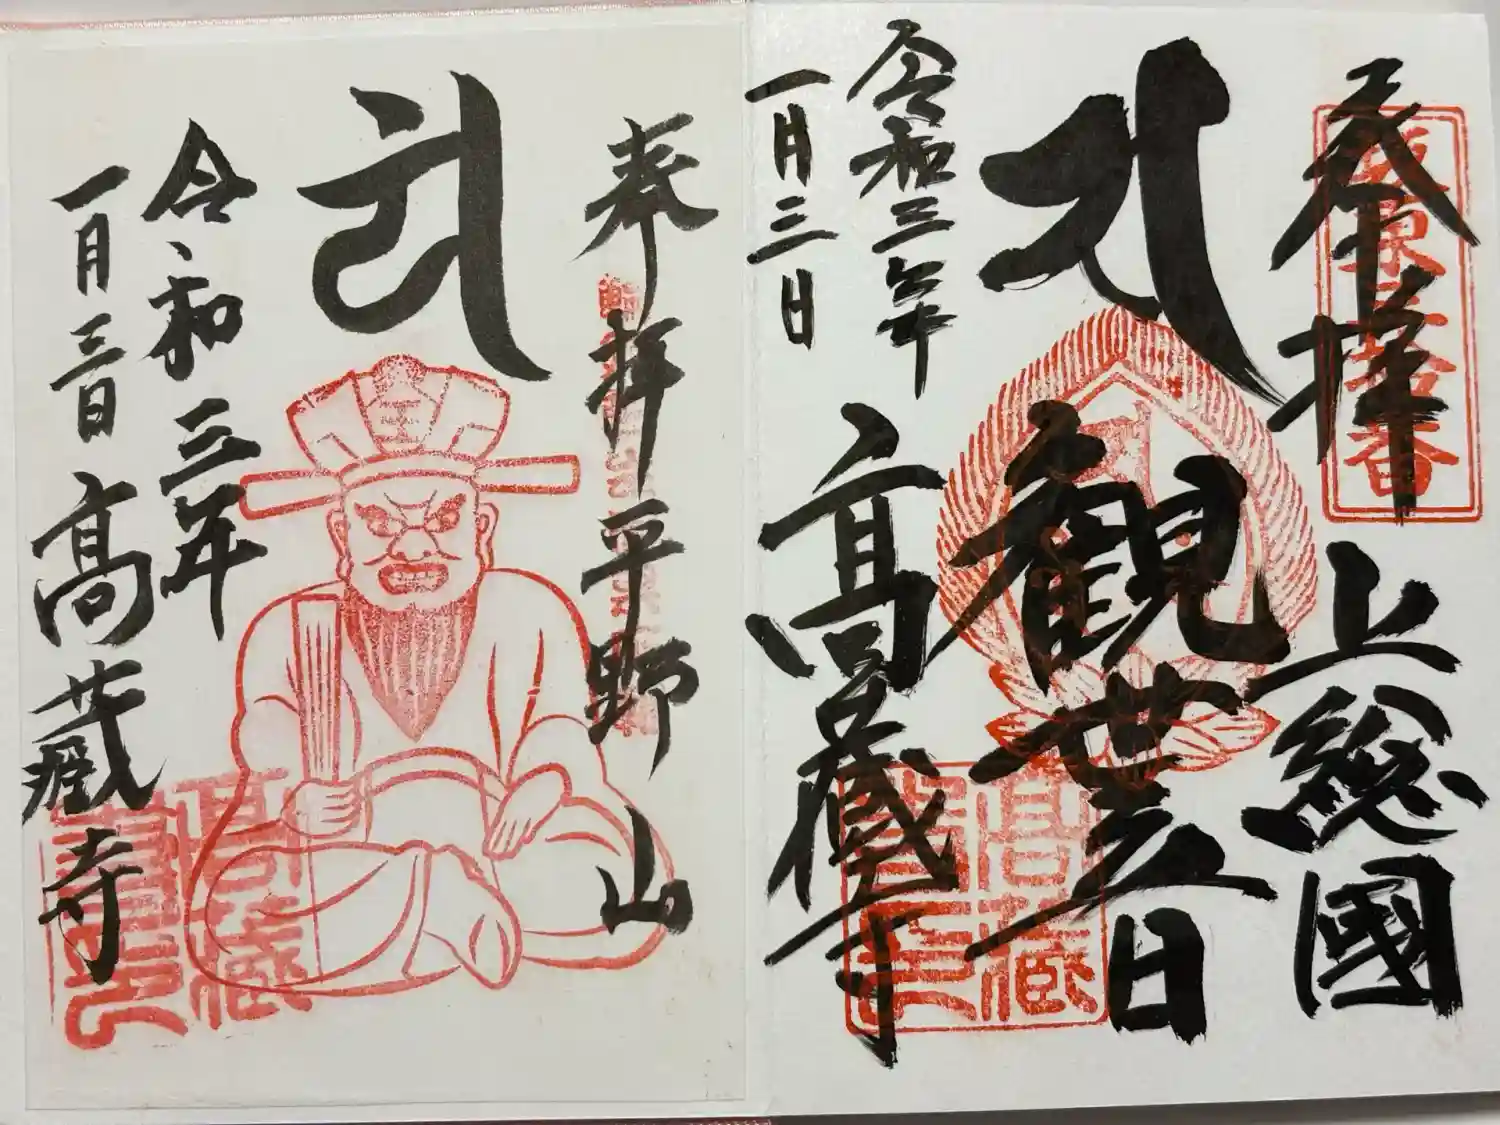 奉拝
坂東三拾番
上総國
観世音
高蔵寺
高蔵
令和三年
一月三日
奉拝
平野山
令和三年
一月三日
高蔵寺
高蔵